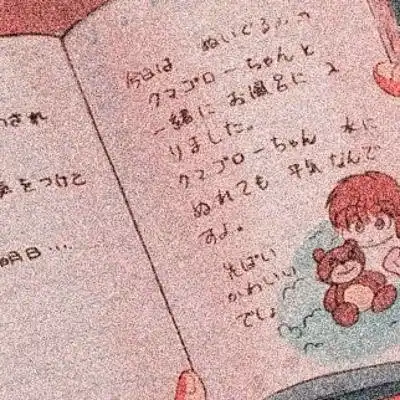 今日は ぬいぐるみの
クマゴローちゃんと
一緒に お風呂に 入
りました。
クマゴローちゃん 水に
ぬれても 平気なんで
すよ。
先ぱい
かわいい
でしょ
され
をつけて
明日…